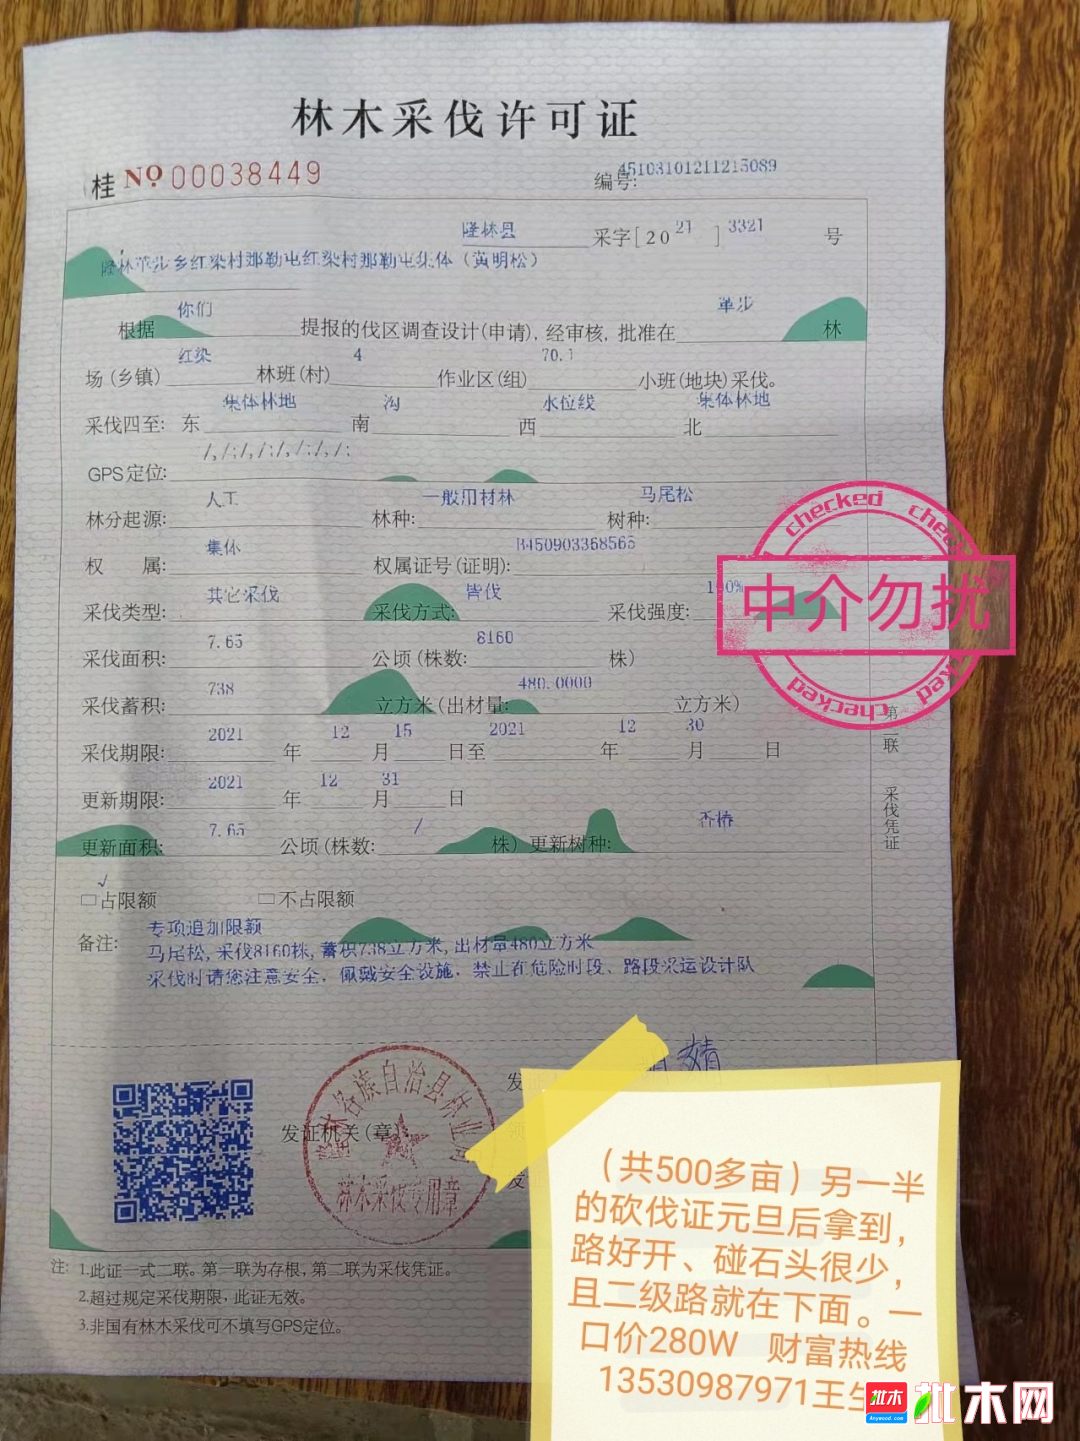 林木采伐许可证
桂 NO 00038449
编号: 451031012112
隆林县 采字[2021] 3321 号
红染村那勒屯红染村那勒屯集体（黄明松）
根据 你们 提报的伐区调查设计(申请), 经审核, 批准在 革步 林
场(乡镇) 红染 林班(村) 4 作业区(组) 70.1 小班(地块)采伐。
采伐四至: 东 集体林地 南 沟 西 水位线 北 集体林地
GPS定位: /,/;/,/;/,/;/,/;
林分起源: 人工 林种: 一般用材林 树种: 马尾松
权 属: 集体 权属证号(证明): B450903368565
采伐类型: 其它采伐 采伐方式: 皆伐 采伐强度: 100%
采伐面积: 7.65 公顷(株数: 8160 株)
采伐蓄积: 738 立方米(出材量: 480.0000 立方米)
采伐期限: 2021 年 12 月 15 日至 2021 年 12 月 30 日
更新期限: 2021 年 12 月 31 日
更新面积: 7.65 公顷(株数: / 株) 更新树种: 香椿
√
□占限额 □不占限额
备注: 专项追加限额
马尾松, 采伐8160株, 蓄积738立方米, 出材量480立方米
采伐时请您注意安全, 佩戴安全设施, 禁止在危险时段、路段采运设计队
第二联 采伐凭证
checked checked
中介勿扰
checked checked
发证机关(章)
各族自治县林业局
林木采伐专用章
婧
注: 1.此证一式二联。第一联为存根, 第二联为采伐凭证。
2.超过规定采伐期限, 此证无效。
3.非国有林木采伐可不填写GPS定位。
（共500多亩）另一半
的砍伐证元旦后拿到，
路好开、碰石头很少，
且二级路就在下面。一
口价280W 财富热线
13530987971王生
批木 Anywood.com 批木网